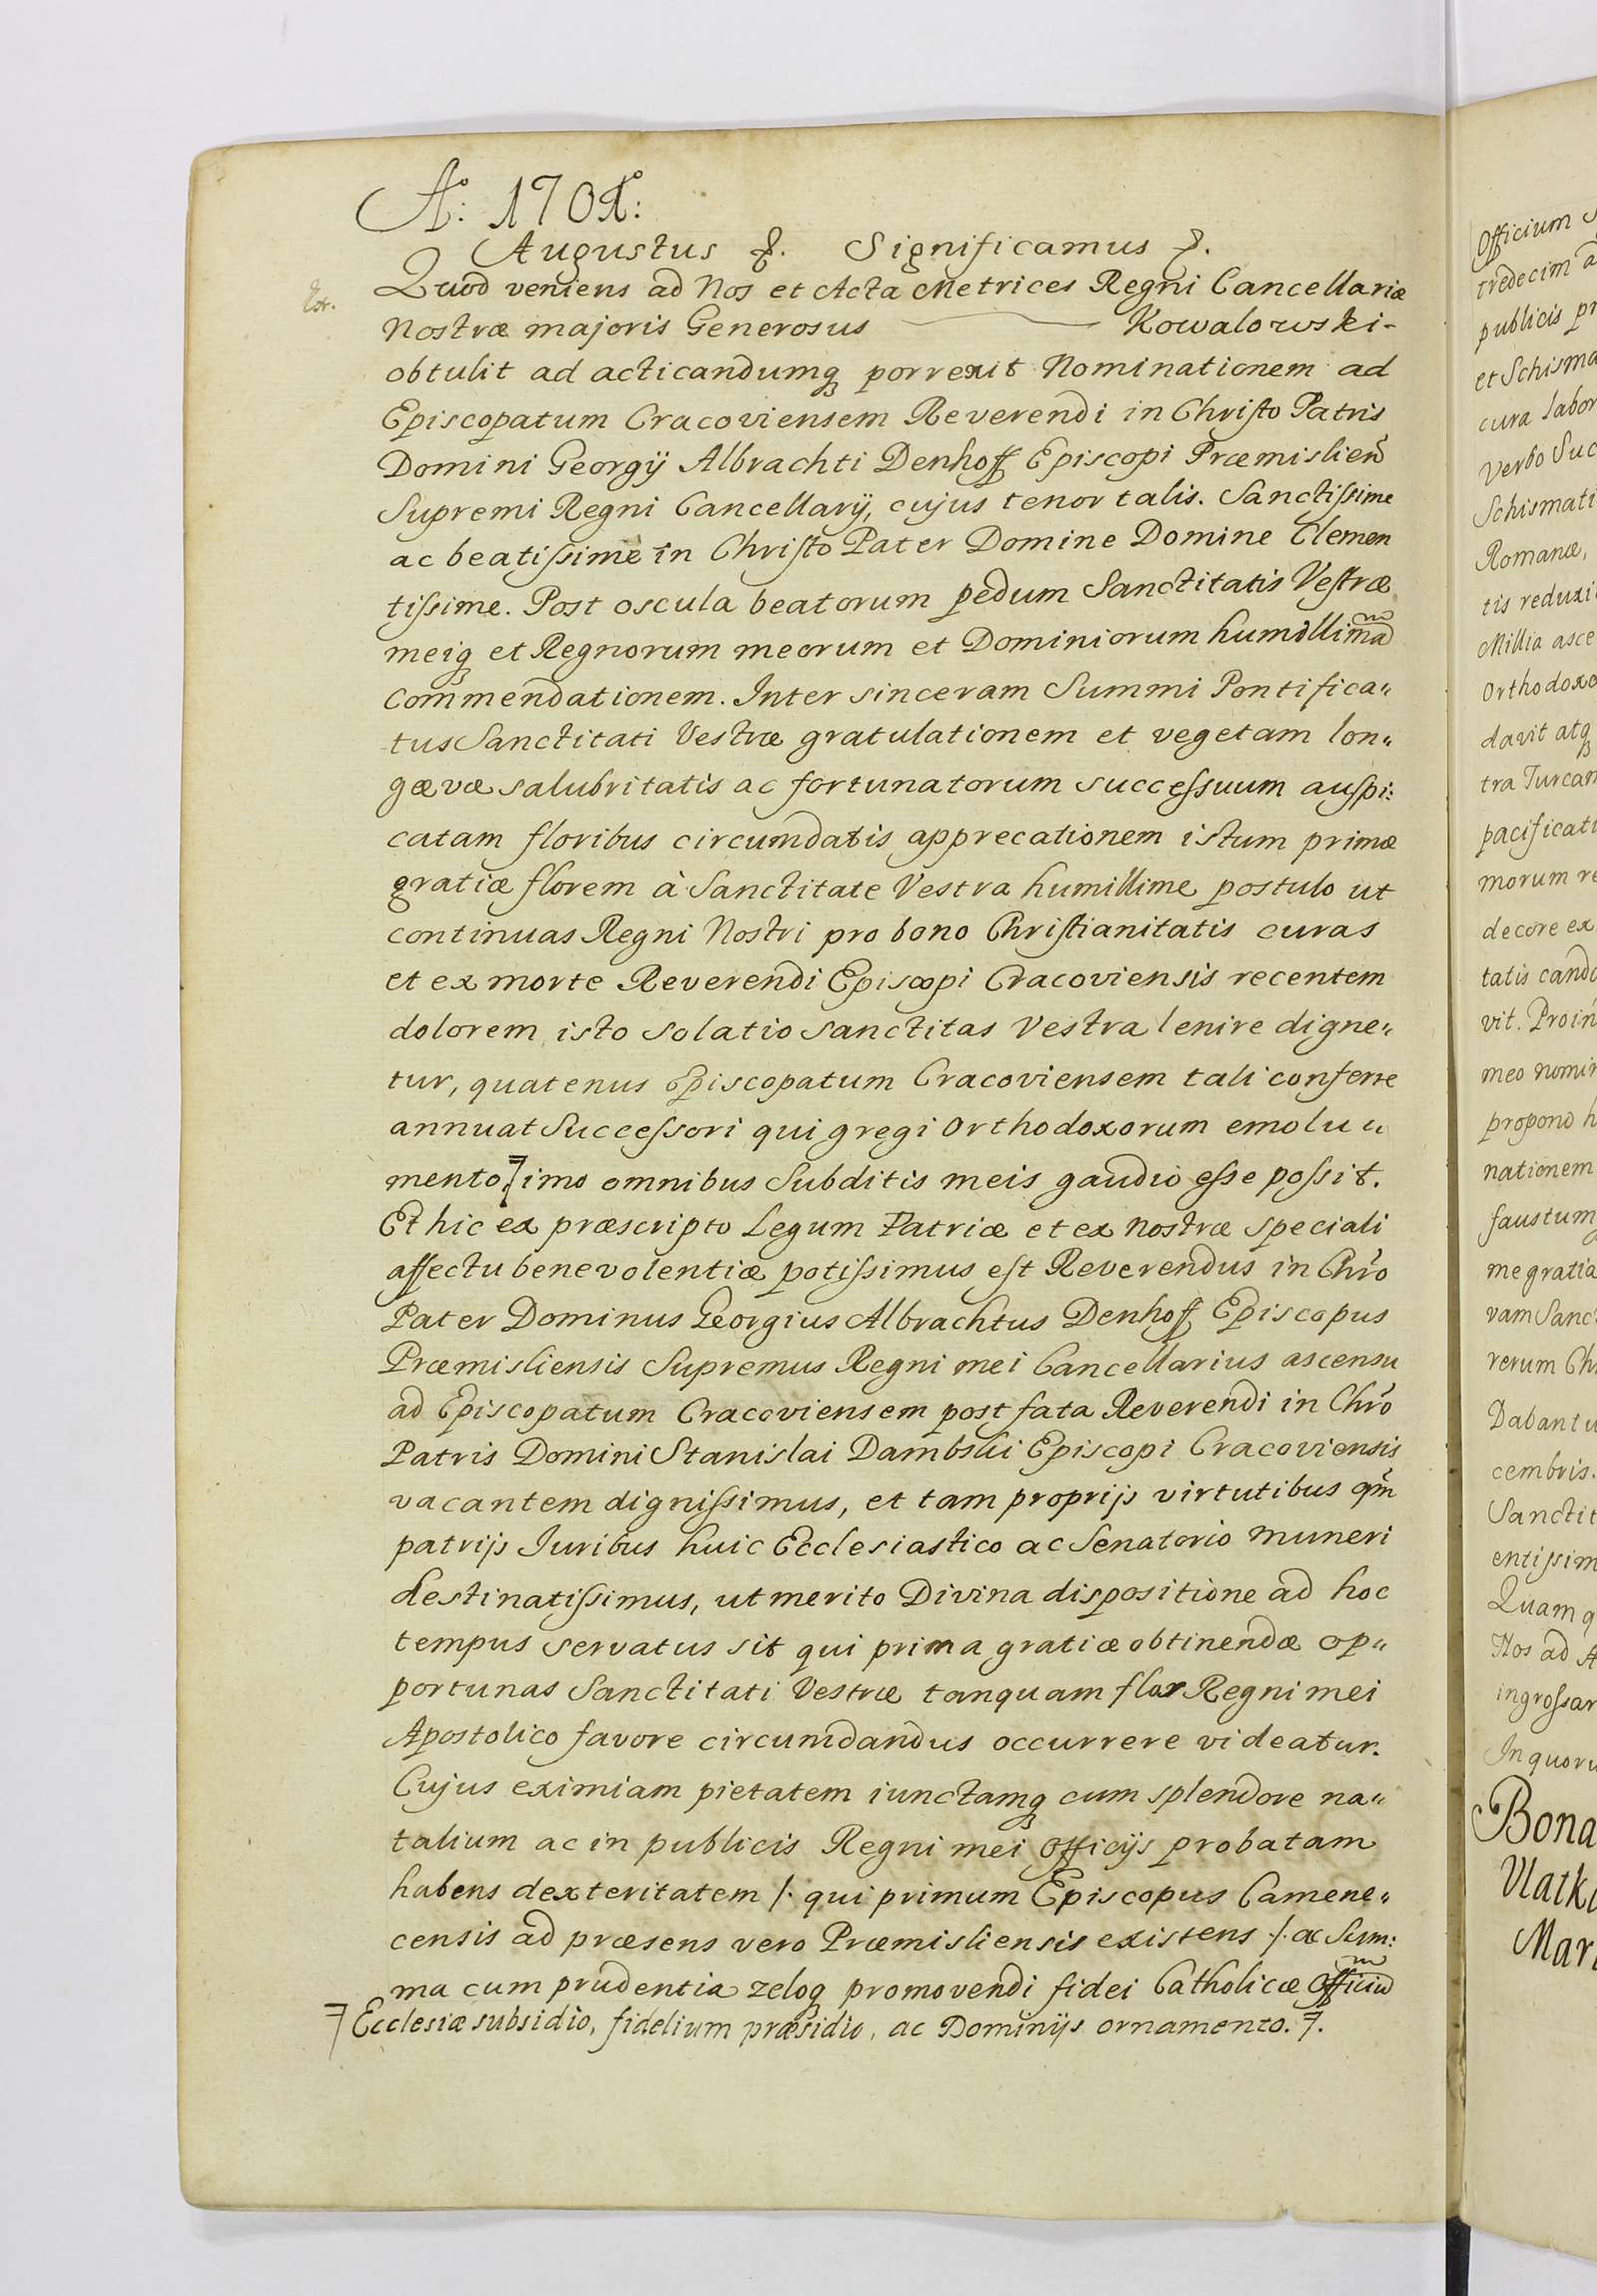 Aº: 1701º:
Augustus &. Significamus &.
Quod veniens ad Nos et Acta Metrices Regni Cancellariæ
Nostræ majoris Generosus Kowalowski-
obtulit ad acticandumq porrexit Nominationem ad
Episcopatum Cracoviensem Reverendi in Christo Patris
Domini Georgij Albrachti Denhoff Episcopi Præmislien̄
Supremi Regni Cancellarij, cujus tenor talis. Sanctissime
ac beatissime in Christo Pater Domine Domine Clemen
tissime. Post oscula beatorum pedum Sanctitatis Vestræ
meiq et Regnorum meorum et Dominiorum humillimam
commendationem. Inter sinceram Summi Pontifica„
tus Sanctitati Vestræ gratulationem et vegetam lon„
gævæ salubritatis ac fortunatorum successuum auspi:
catam floribus circumdatis apprecationem istum primæ
gratiæ florem à Sanctitate Vestra humillime postulo ut
continuas Regni Nostri pro bono Christianitatis curas
et ex morte Reverendi Episcopi Cracoviensis recentem
dolorem isto solatio Sanctitas Vestra lenire digne„
tur, quatenus Episcopatum Cracoviensem tali conferre
annuat Successori qui gregi Orthodoxorum emolu„
mento, imo omnibus Subditis meis gaudio esse possit.
Et hic ex præscripto Legum Patriæ et ex nostræ speciali
affectu benevolentiæ potissimus est Reverendus in Chr̄o
Pater Dominus Georgius Albrachtus Denhoff Episcopus
Præmisliensis Supremus Regni mei Cancellarius ascensu
ad Episcopatum Cracoviensem post fata Reverendi in Chr̄o
Patris Domini Stanislai Dambski Episcopi Cracoviensis
vacantem dignissimus, et tam proprijs virtutibus qm̄
patrijs Juribus huic Ecclesiastico ac Senatorio muneri
destinatissimus, ut merito Divina dispositione ad hoc
tempus servatus sit qui prima gratiæ obtinendæ op„
portunas Sanctitati Vestræ tanquam flos Regni mei
Apostolico favore circumdandus occurrere videatur.
Cujus eximiam pietatem iunctamq cum splendore na„
talium ac in publicis Regni mei Officijs probatam
habens dexteritatem /. qui primum Episcopus Camene„
censis ad præsens vero Præmisliensis existens ./. ac Sum:
ma cum prudentia zeloq promovendi fidei Catholicæ Officium
Ecclesiæ subsidio, fidelium præsidio, ac Dominijs ornamento.
Officium
tredecim
publicis
et Schisma
cura labor
Verbo Suc
Schismati
Romanæ,
tis reduxi
Millia asce
Orthodoxo
davit atq
tra Turcan
pacificati
morum re
decore ex
tatis cando
vit. Proin
meo nomin
propono h
nationem
faustum
me gratia
vam Sanct
rerum Chr
Dabantu
cembris.
Sanctit
entissim
Quam q
Nos ad A
ingrossar
In quoru
Bona
Ulatk
Mari